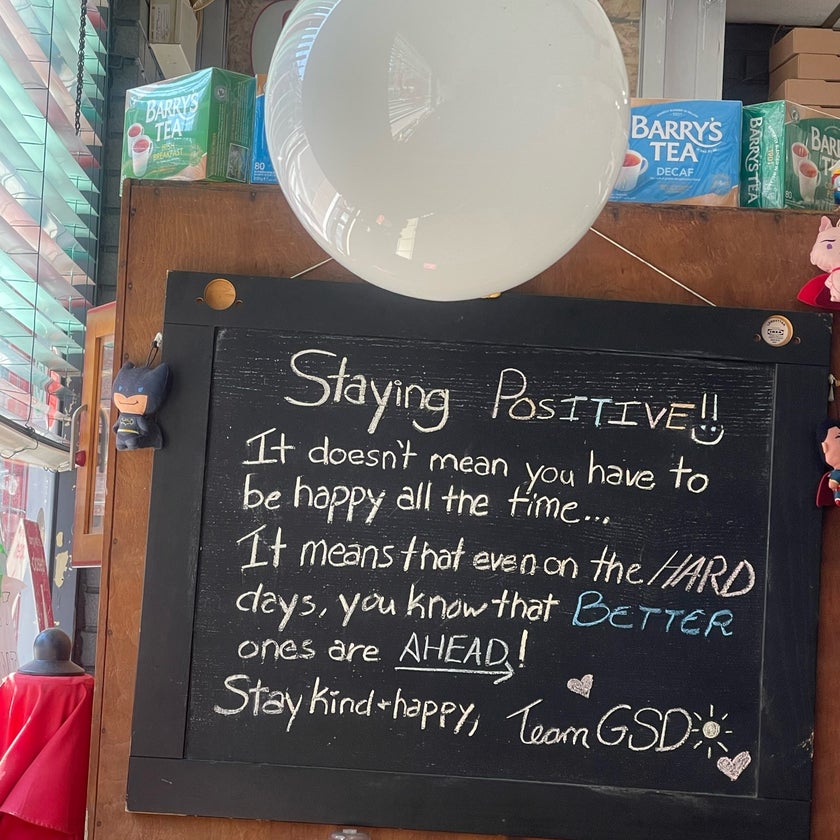 BARRY'S
TEA
80
BARRY'S
TEA
DECAF
BARRY'S TEA
80
Staying POSITIVE!!
It doesn't mean you have to
be happy all the time...
It means that even on the HARD
days, you know that BETTER
ones are AHEAD!
Stay kind + happy, Team GSD